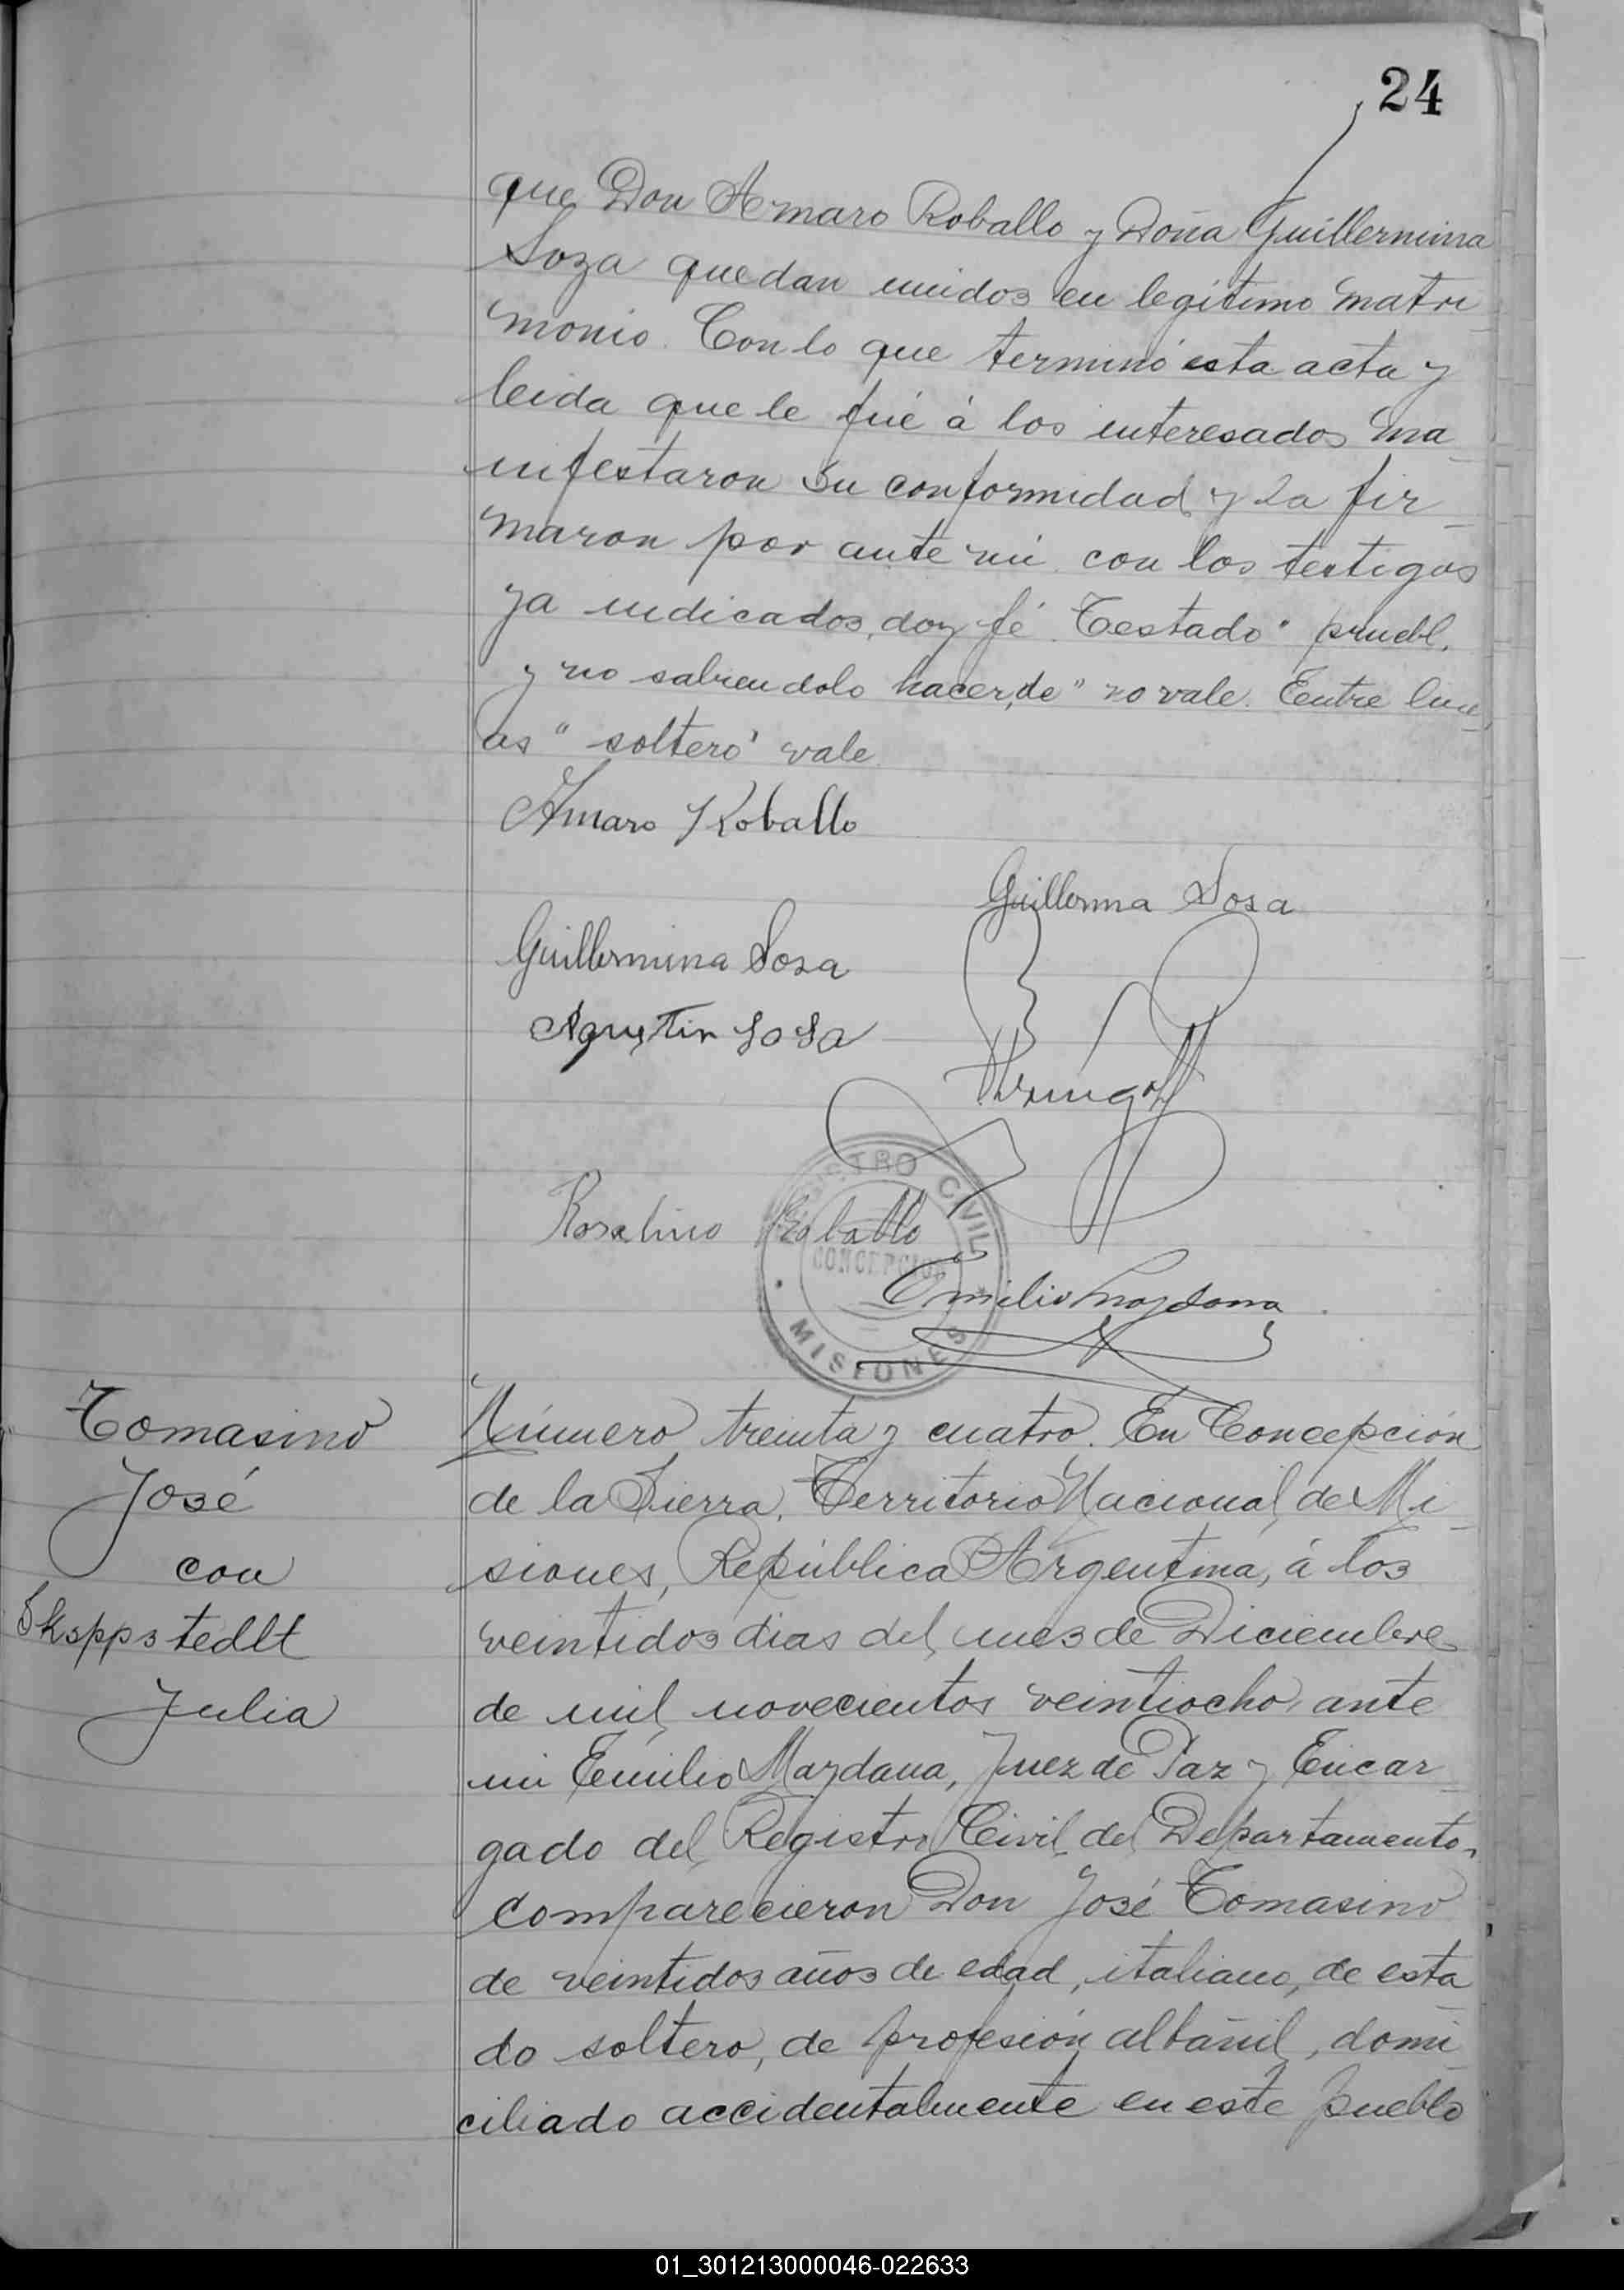 24
que Don Amaro Roballo y Doña Guillermina
Soza quedan unidos en legítimo matri
monio. Con lo que terminó esta acta y
leida que le fué á los interesados ma
nifestaron su conformidad y la fir
maron por ante mi con los testigos
ya indicados, doy fé. Testado "pruebl.
y no sabiendolo hacer, de" no vale. Entre line
as "soltero" vale
Amaro Roballo
Guillerma Sosa
Guillermina Sosa
Agustin Sosa
Rosalino Roballo
REGISTRO CIVIL
CONCEPCION
MISIONES
Emilio Mazdana
Tomasino
José
con
Skoppstedlt
Julia
Número treinta y cuatro. En Concepción
de la Sierra, Territorio Nacional de Mi
siones, República Argentina, á los
veintidos dias del mes de Diciembre
de mil novecientos veintiocho, ante
mi Emilio Mazdana, Juez de Paz y Encar
gado del Registro Civil del Departamento,
comparecieron Don José Tomasino
de veintidos años de edad, italiano, de esta
do soltero, de profesión albañil, domi
ciliado accidentalmente en este pueblo
01_301213000046-022633